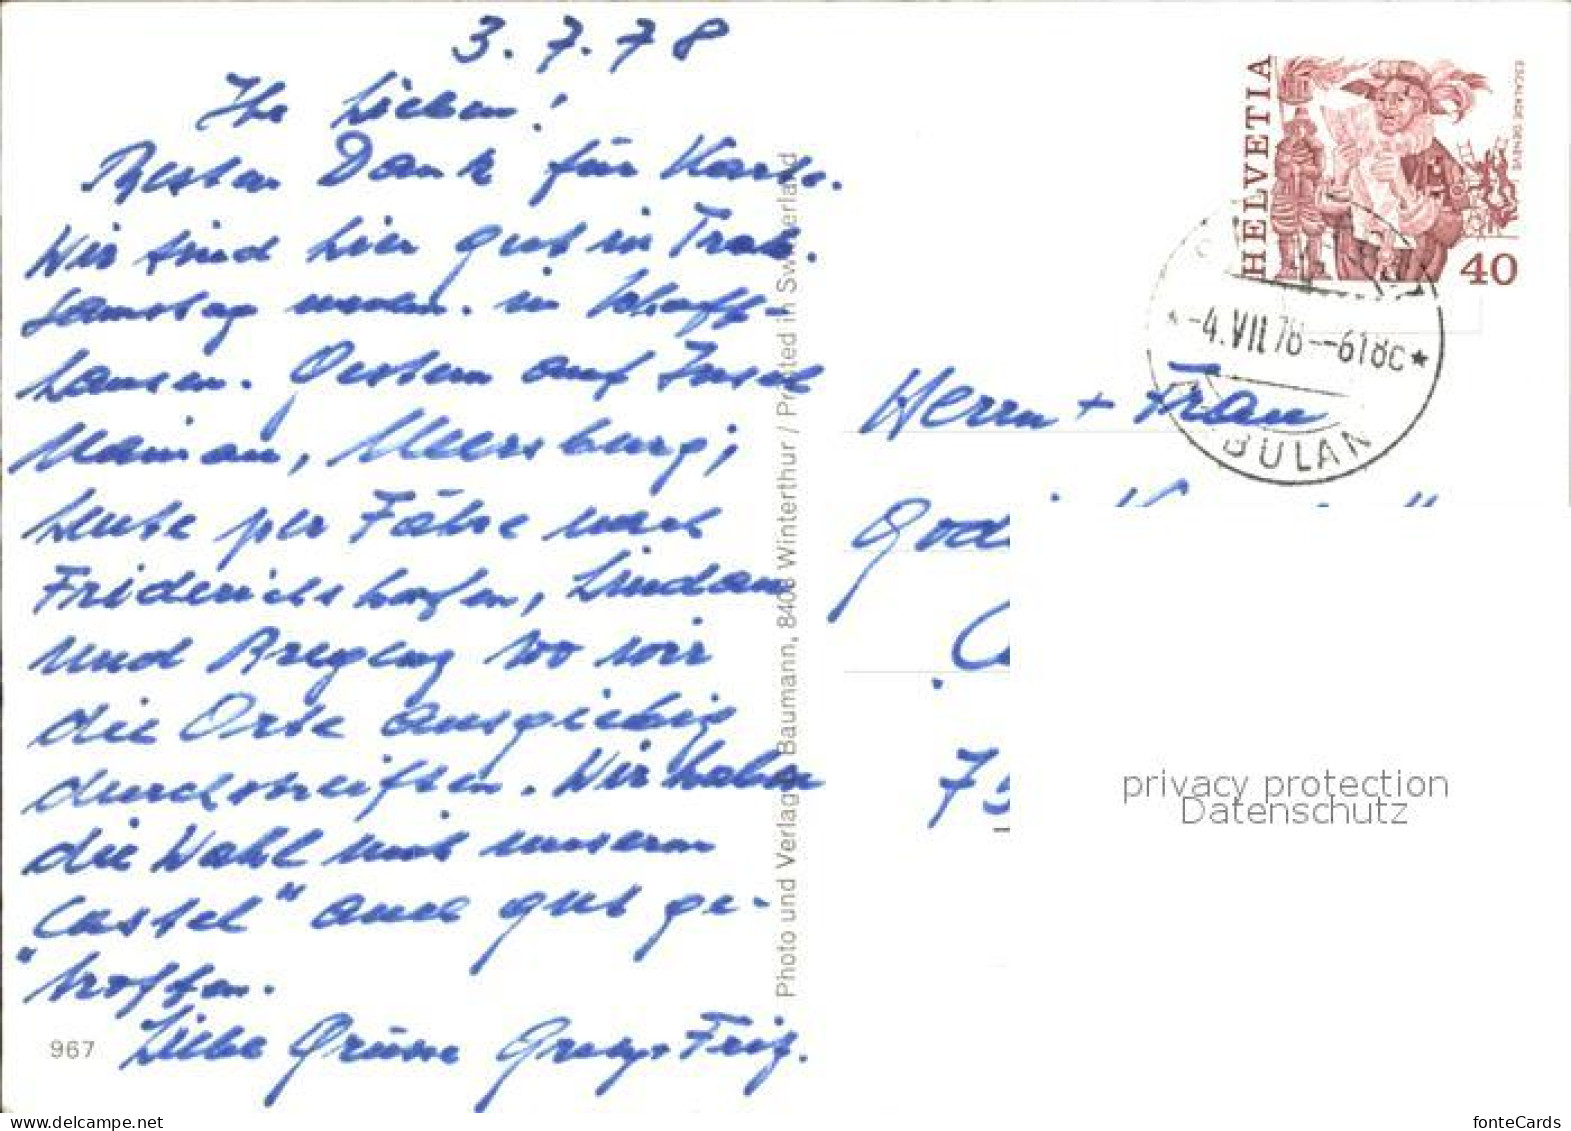 3. 7. 78
Ihr Lieben!
Besten Dank für Karte.
Wir sind hier gut in Trab.
Samstag waren in Schaff-
hausen. Gestern auf Insel
Mainau, Meersburg;
heute per Fähre nach
Friderichshafen, Lindau
und Bregenz wo wir
die Orte ausgiebig
durchstreiften. Wir haben
die Wahl mit unserem
"Castel" auch gut ge-
troffen.
Liebe Grüsse Fritz.
967
Photo und Verlag Baumann, 8408 Winterthur / Printed in Switzerland
HELVETIA
ESCALADE GENÈVE
40
-4.VII.78--618c
BULAN
Herrn + Frau
75
privacy protection
Datenschutz
www.delcampe.net
fonteCards